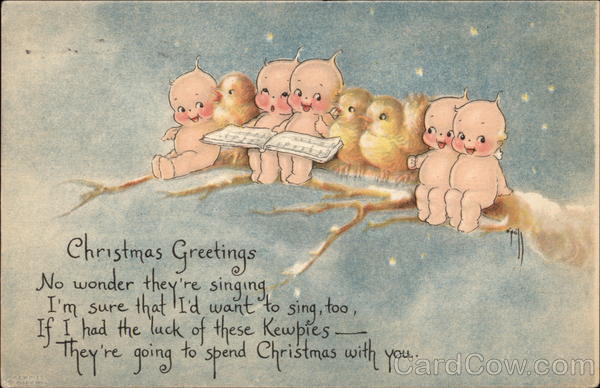 Christmas Greetings
No wonder they're singing
I'm sure that I'd want to sing, too,
If I had the luck of these Kewpies —
They're going to spend Christmas with you.
CardCow.com